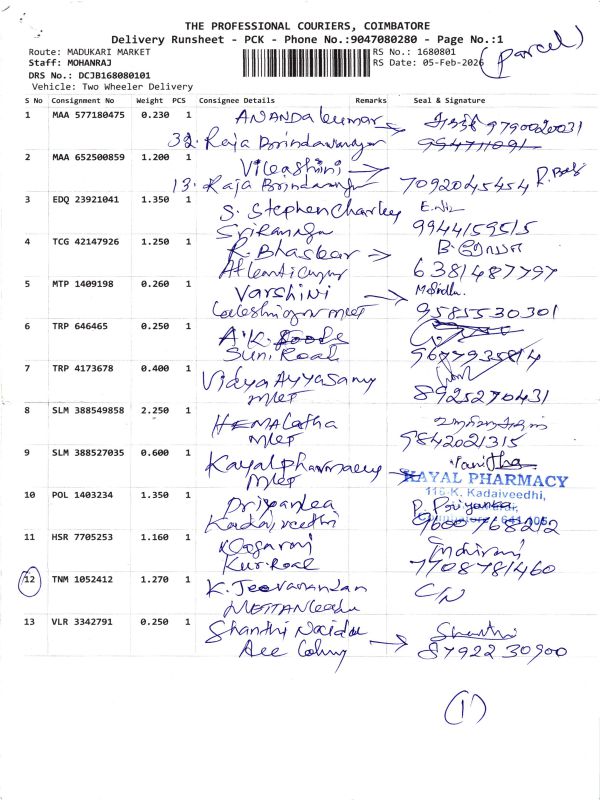 THE PROFESSIONAL COURIERS, COIMBATORE
Delivery Runsheet - PCK - Phone No.:9047080280 - Page No.:1
(parcel)
Route: MADUKARI MARKET
RS No.: 1680801
Staff: MOHANRAJ
RS Date: 05-Feb-2026
DRS No.: DCJB168080101
Vehicle: Two Wheeler Delivery
S No Consignment No Weight PCS Consignee Details Remarks Seal & Signature
1 MAA 577180475 0.230 1 ANANDA kumar 9790020031
32. Raja
2 MAA 652500859 1.200 1 Vileashini
13. Raja 7092045454
3 EDQ 23921041 1.350 1 S. Stephen Charley
9944159515
4 TCG 42147926 1.250 1 R. Bhaskar
6381487797
5 MTP 1409198 0.260 1 Varshini
MLET 9585530301
6 TRP 646465 0.250 1 A.K. Foods
Suni Road 9677935814
7 TRP 4173678 0.400 1 Vidya Ayyasamy
MLET 8925270431
8 SLM 388549858 2.250 1 HEMALatha
MLET 9842021315
9 SLM 388527035 0.600 1 Kayal pharmacy Vanitha
MLET
KAYAL PHARMACY
116 K. Kadaiveedhi,
10 POL 1403234 1.350 1 Priyanka P. Priyanka
Kadaiveethi 9600768212
11 HSR 7705253 1.160 1 Indirani
Kur. Road 7708781460
12 TNM 1052412 1.270 1 K. Jeevanandan C/N
13 VLR 3342791 0.250 1 Shanthi Naidu Shanthi
Aee Colony 87922 30900
(1)